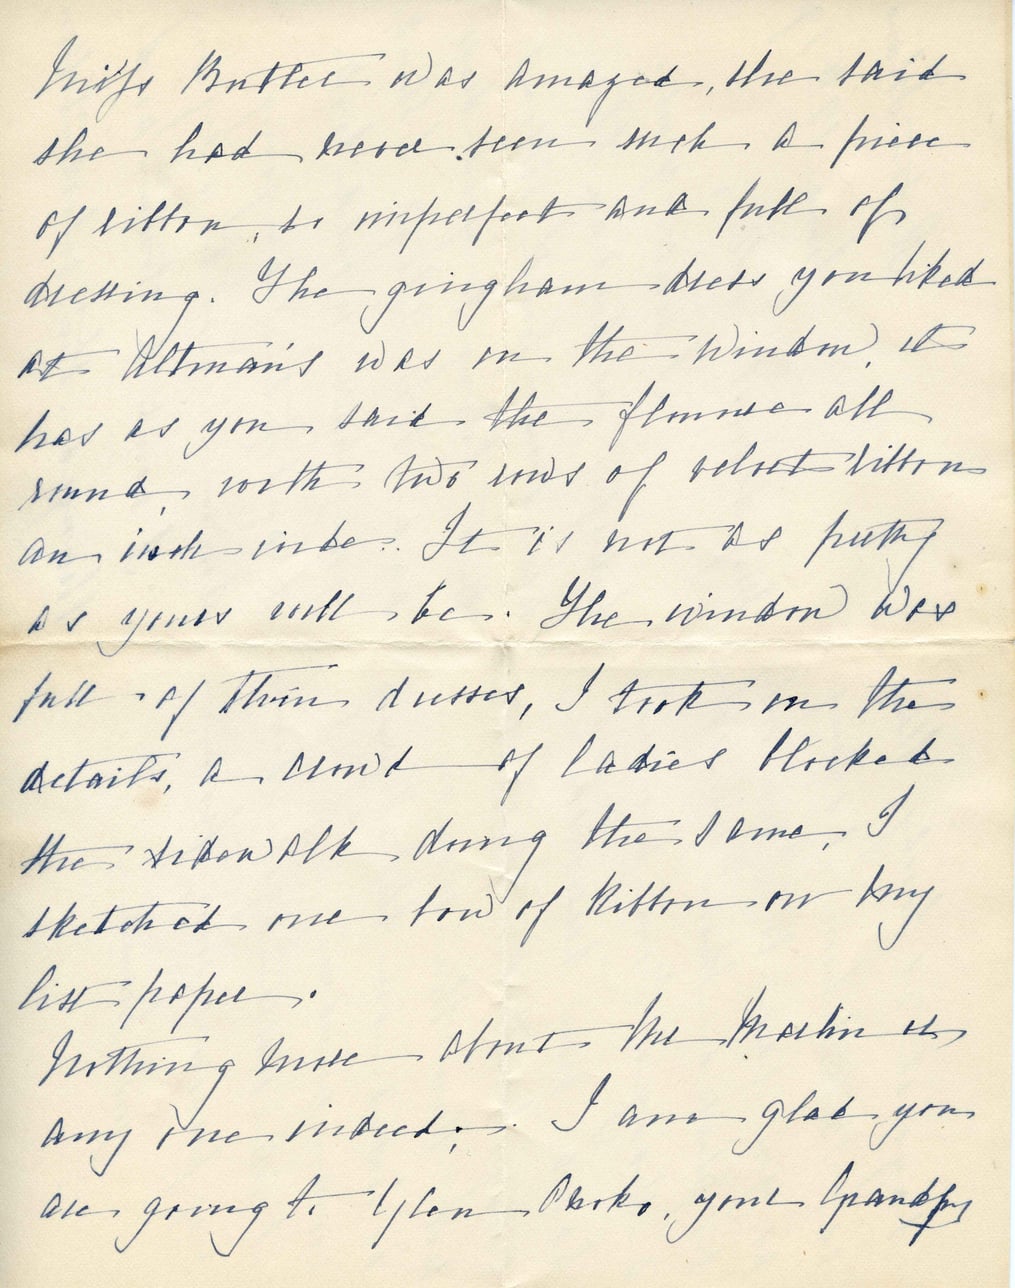 Miss Butler was amazed, she said
she had never seen such a piece
of ribbon, so imperfect and full of
dressing. The gingham dress you liked
at Altman's was in the window, it
has as you said the flounce all
round, with two rows of velvet ribbon
an inch wide. It is not as pretty
as yours will be. The window was
full of thin dresses, I took in the
details, a crowd of ladies blocked
the sidewalk doing the same, I
sketched one bow of Ribbon on my
list paper.
Nothing more about the Muslin or
any one indeed; I am glad you
are going to Glen, your Grandpy